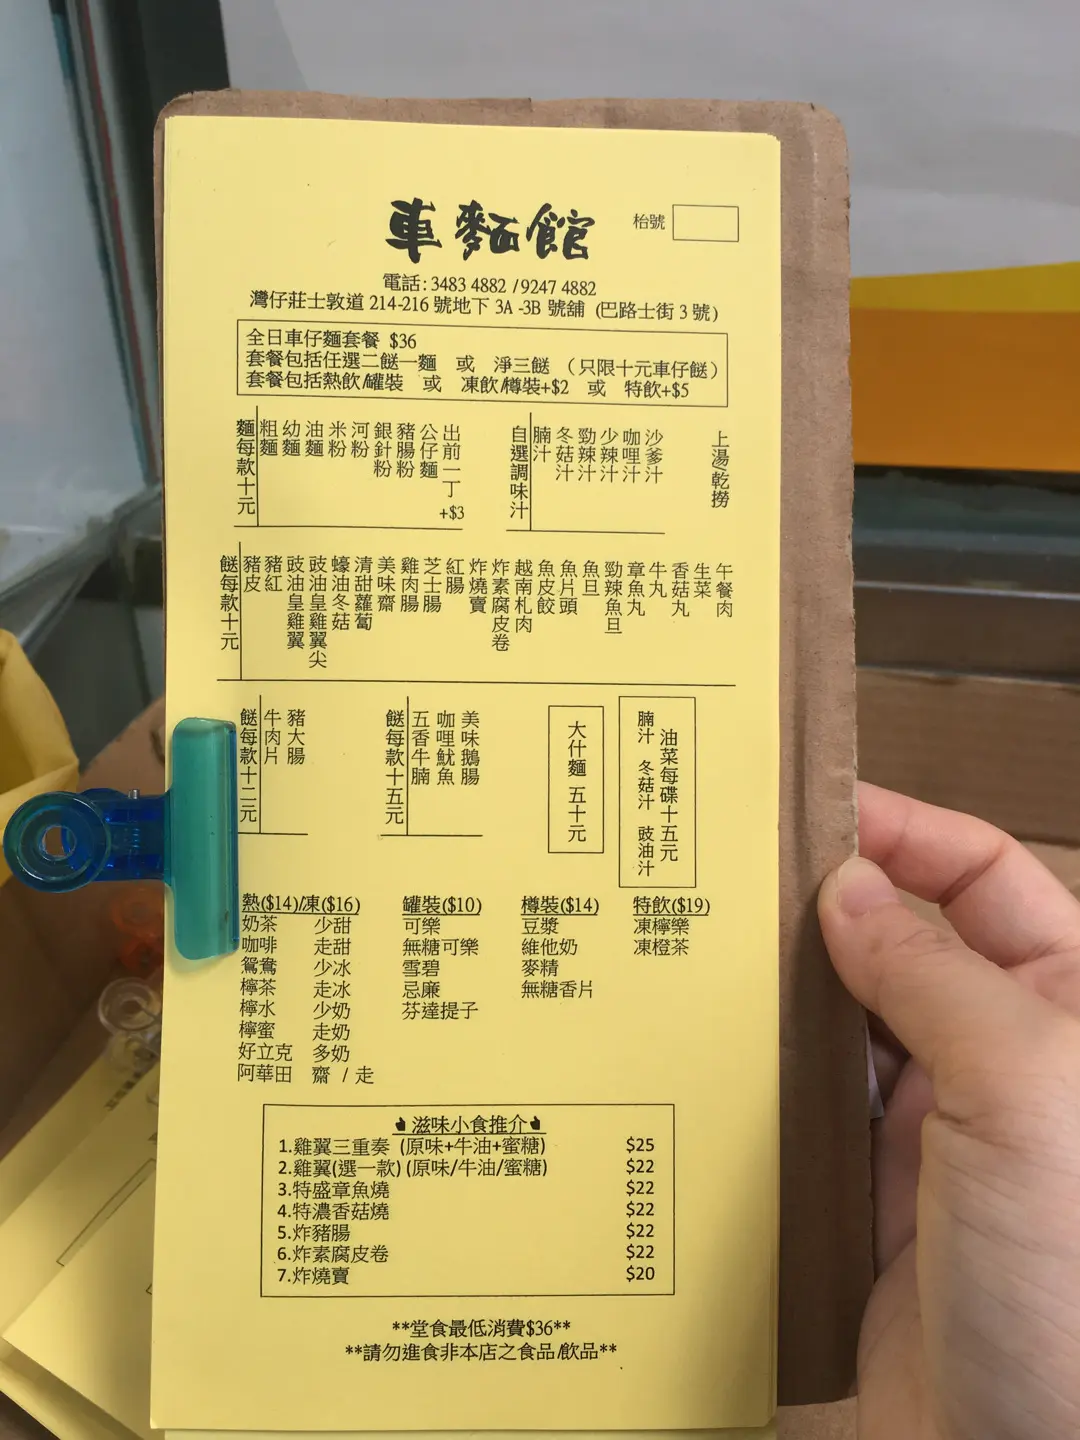 車麵館
枱號
電話: 3483 4882 / 9247 4882
灣仔莊士敦道 214-216 號地下 3A -3B 號舖 (巴路士街 3 號)
全日車仔麵套餐 $36
套餐包括任選二餸一麵 或 淨三餸 （只限十元車仔餸）
套餐包括熱飲/罐裝 或 凍飲/樽裝+$2 或 特飲+$5
麵每款十元
粗麵
幼麵
油麵
米粉
河粉
銀針粉
豬腸粉
公仔麵
出前一丁 +$3
自選調味汁
腩汁
冬菇汁
勁辣汁
少辣汁
咖哩汁
沙爹汁
上湯/乾撈
餸每款十元
豬皮
豬紅
豉油皇雞翼
豉油皇雞翼尖
蠔油冬菇
清甜蘿蔔
美味齋
雞肉腸
芝士腸
紅腸
炸燒賣
炸素腐皮卷
越南札肉
魚皮餃
魚片頭
魚旦
勁辣魚旦
章魚丸
牛丸
香菇丸
生菜
午餐肉
餸每款十二元
牛肉片
豬大腸
餸每款十五元
五香牛腩
咖哩魷魚
美味鵝腸
大什麵 五十元
油菜每碟十五元
腩汁 冬菇汁 豉油汁
熱($14)/凍($16)
奶茶 少甜
咖啡 走甜
鴛鴦 少冰
檸茶 走冰
檸水 少奶
檸蜜 走奶
好立克 多奶
阿華田 齋 / 走
罐裝($10)
可樂
無糖可樂
雪碧
忌廉
芬達提子
樽裝($14)
豆漿
維他奶
麥精
無糖香片
特飲($19)
凍檸樂
凍橙茶
滋味小食推介
1.雞翼三重奏 (原味+牛油+蜜糖) $25
2.雞翼(選一款) (原味/牛油/蜜糖) $22
3.特盛章魚燒 $22
4.特濃香菇燒 $22
5.炸豬腸 $22
6.炸素腐皮卷 $22
7.炸燒賣 $20
**堂食最低消費$36**
**請勿進食非本店之食品/飲品**